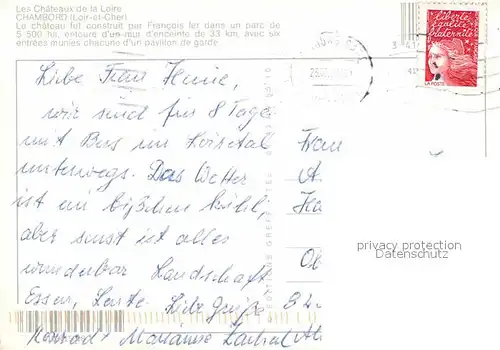 Les Châteaux de la Loire
CHAMBORD (Loir-et-Cher)
Le château fut construit par François Ier dans un parc de
5 500 ha, entouré d'un mur d'enceinte de 33 km, avec six
entrées munies chacune d'un pavillon de garde
liberté
égalité
fraternité
LA POSTE
Liebe Frau
wir sind für 8 Tage
mit Bus im Loiretal
unterwegs. Das Wetter
ist ein bißchen kühl,
aber sonst ist alles
wunderbar Landschaft
Essen, Leute. Liebe Grüße
Konrad + Marianne
Frau
A.
Ha
Ob
82
privacy protection
Datenschutz